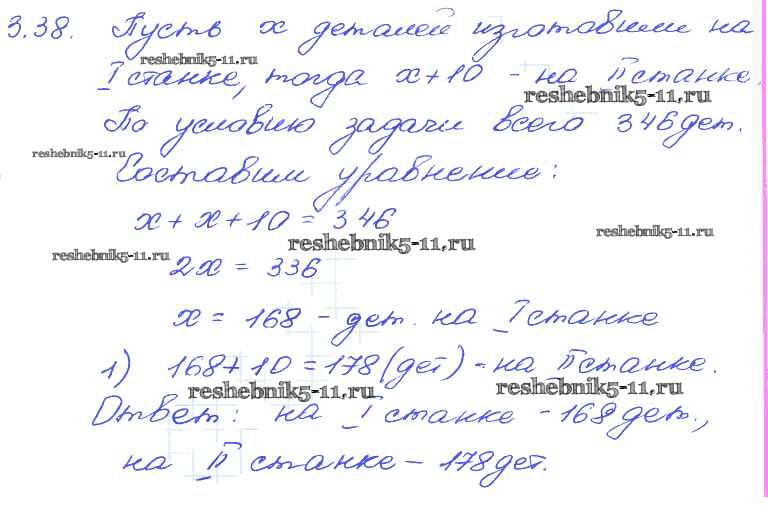 3.38. Пусть x деталей изготовили на
reshebnik5-11.ru
I станке, тогда x+10 - на II станке.
reshebnik5-11.ru
По условию задачи всего 346 дет.
reshebnik5-11.ru
Составим уравнение:
x + x + 10 = 346
reshebnik5-11.ru
reshebnik5-11.ru
reshebnik5-11.ru
2x = 336
x = 168 - дет. на I станке
1) 168 + 10 = 178 (дет) - на II станке.
reshebnik5-11.ru
reshebnik5-11.ru
Ответ: на I станке - 168 дет.,
на II станке - 178 дет.